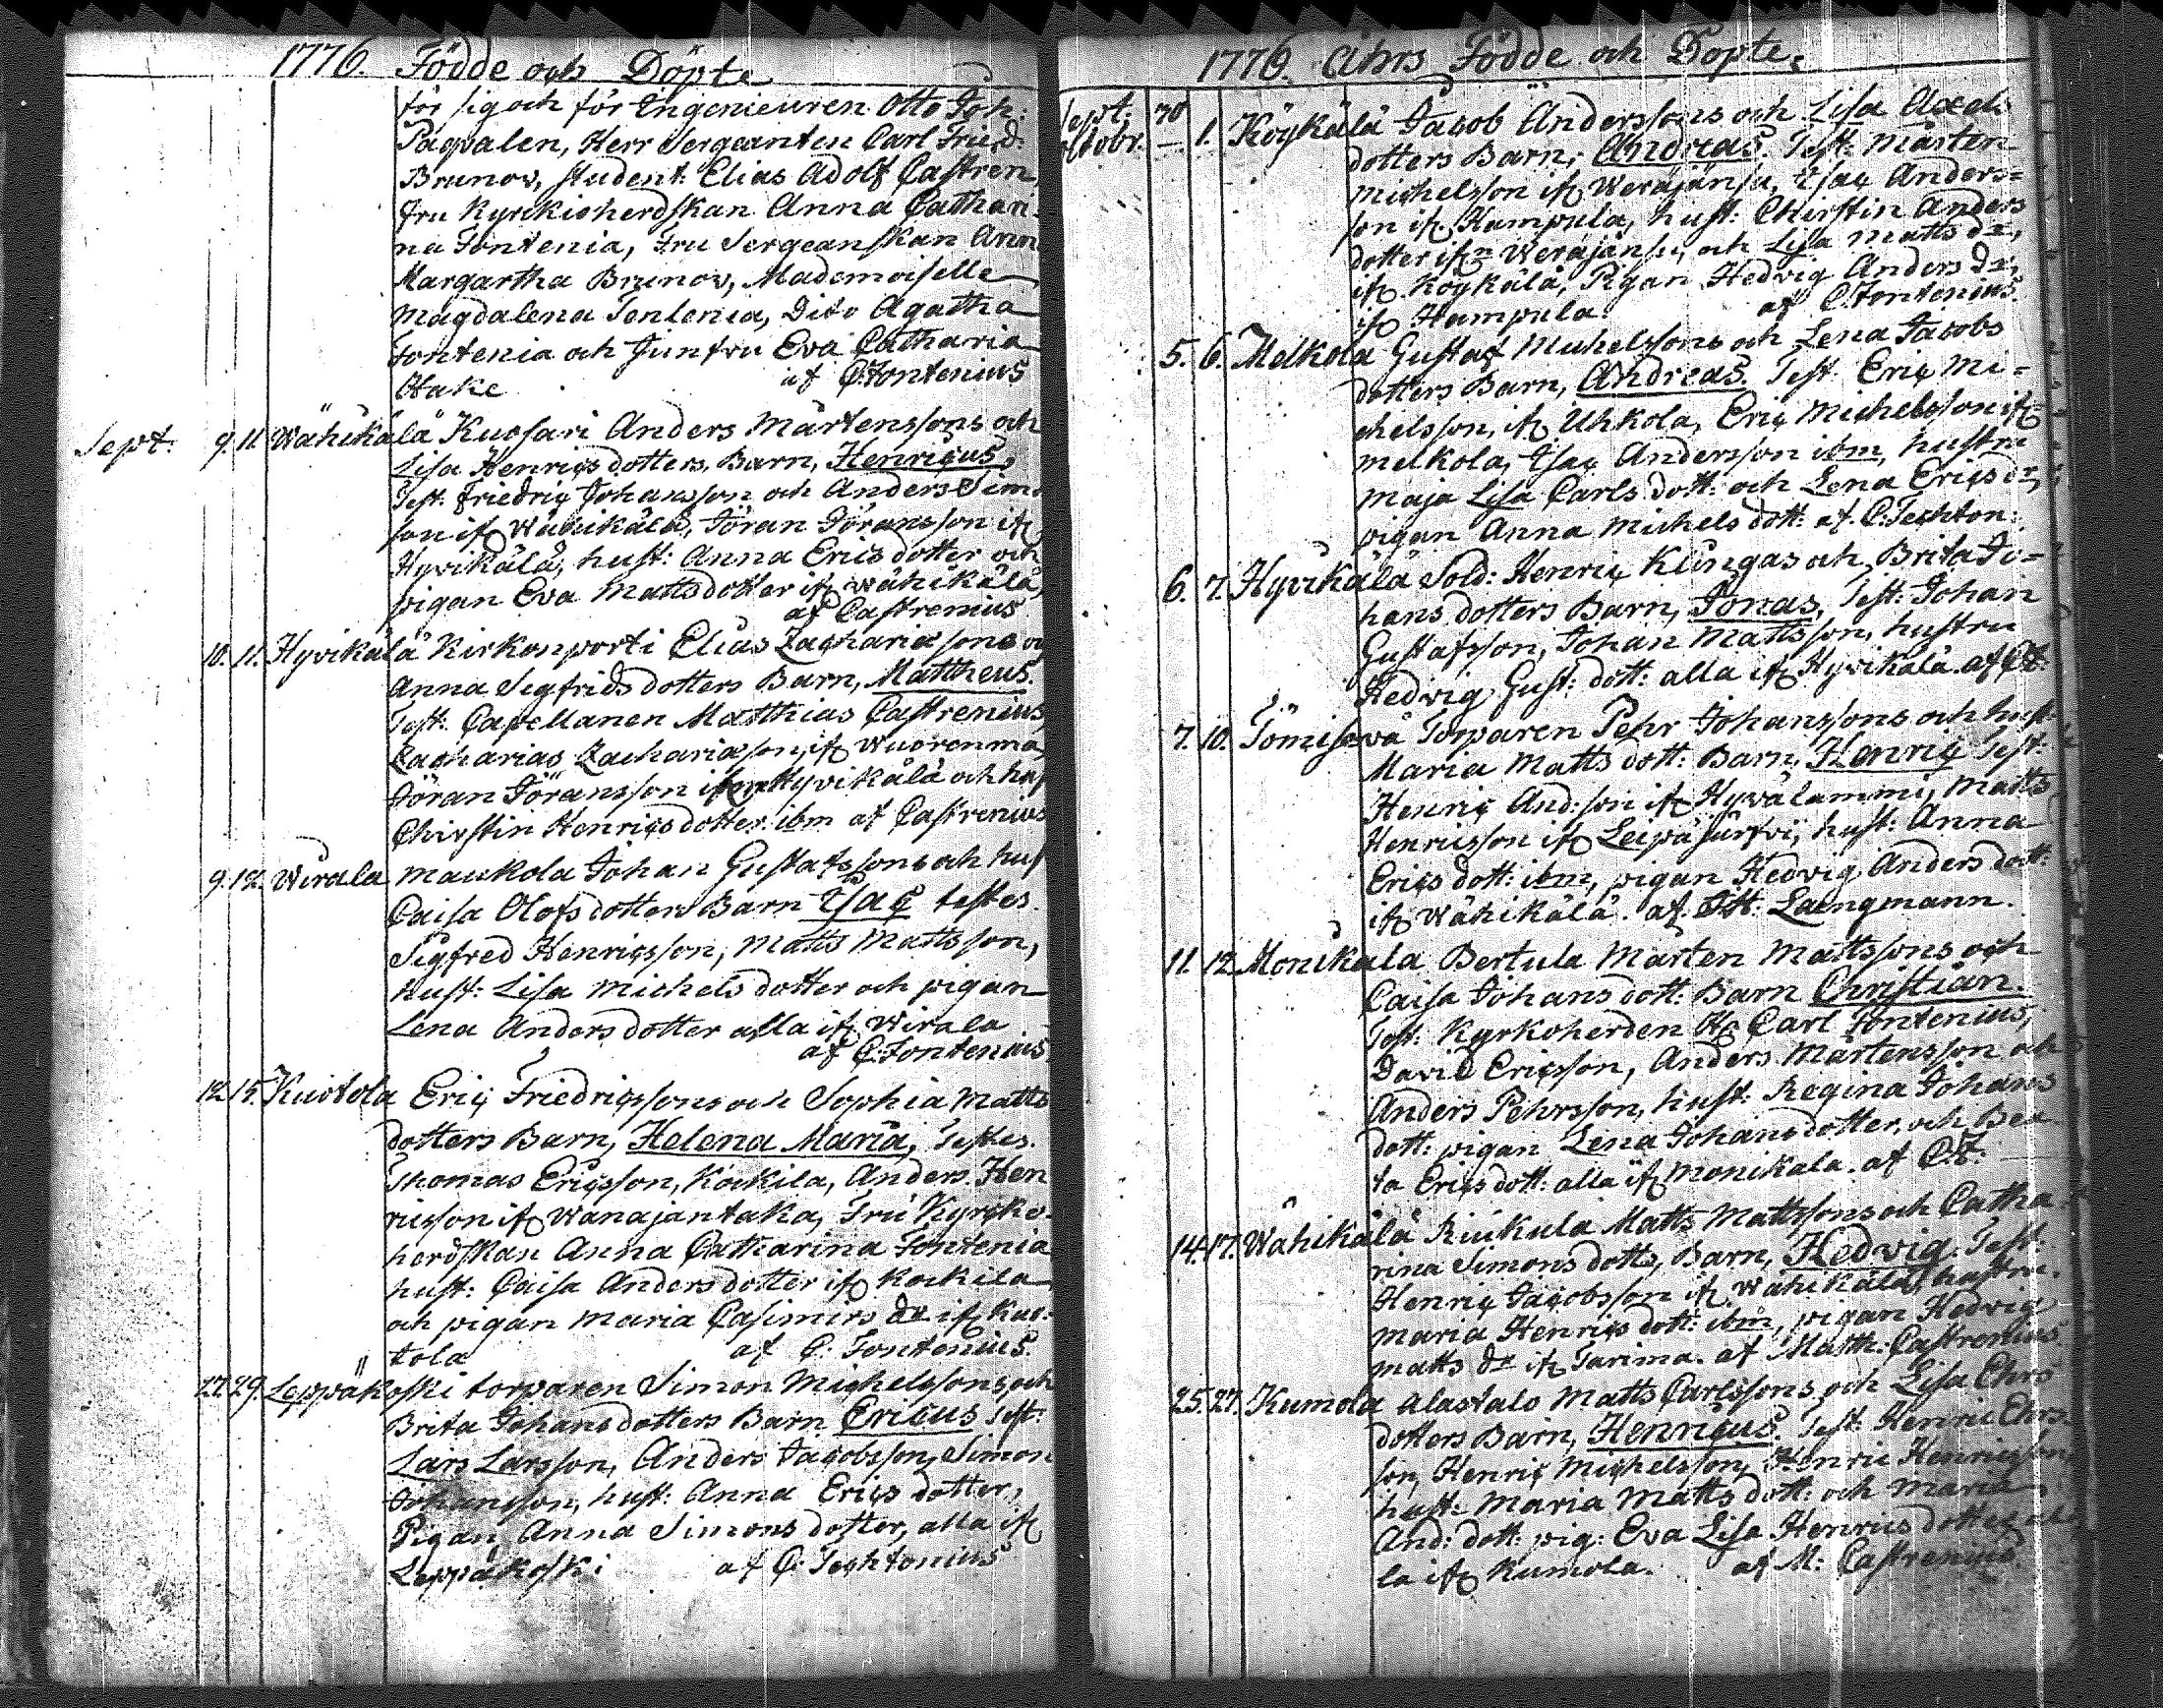 1776. Födde och Döpte
för sig och för Engenieuren Otto Joh:
Pagvalen, Herr Sergeanten Carl Fried:
Brunov, student: Elias Adolf Castren,
fru Kyrkioherdskan Anna Cathari-
na Fontenia, Fru Sergeanskan Anna
Margartha Brunov, Mademoiselle
Magdalena Fontenia, Dito Agatha
Fontenia och Junfru Eva Catharia
Hake af C: Fontenius
Sept. 9. 11. Wähikälä Kuosari Anders Mårtenssons och
Lisa Henricsdotters Barn, Henricus,
Test: Friedric Johansson och Anders Sim.
son if. Wähikälä, Jöran Jöransson if.
Hyvikälä, hust: Anna Erics dotter och
pigan Eva Matts dotter if. Wähikälä,
af Castrenius
10. 11. Hyvikälä Kirkonporti Elias Zachariæsons o
Anna Sigfrids dotters Barn, Mattheus.
Test: Capellanen Matthias Castrenius,
Zacharias Zachariæson, if. Wuorenma,
Jöran Jöransson Hyvikälä och hus
Chirstin Henrics dotter ibm af Castrenius
9. 12. Wirala Maukola Johan Gustafssons och hus
Caisa Olofs dotters Barn Isac testes.
Sigfred Henricsson, Matts Mattsson,
hust: Lisa Michels dotter och pigan
Lena Anders dotter alla if. Wirala.
af C: Fontenius
12. 15. Kuotola Eric Friedricssons och Sophia Matts
dotters Barn, Helena Maria, Testes.
Thomas Ericsson, Kockila, Anders Hen
ricsson if. Wanajantaka, Fru Kyrcko-
herdskan Anna Catharina Fontenia
hust: Caisa Anders dotter if. Kockila,
och pigan Maria Casimirs dr if. Kuo-
tola af C: Fontenius
27. 29. Leppäkoski torparen Simon Michelssons och
Brita Johans dotters Barn Ericus Test:
Lars Larsson, Anders Jacobsson, Simon
Johansson, hust: Anna Erics dotter,
Pigan Anna Simons dotter, alla if.
Leppäkoski af C: Techtonius
1776. Åhrs Födde och Döpte.
Sept. 30
Octobr. — 1. Köykälä Jacob Anderssons och Lisa Axels
dotters Barn, Andreas. Test: Mårten
Michelsson if. Weräjänsu, Isac Anders=
son if. Hampula, hust: Chirstin Anders
dotter ifn Weräjänsu, och Lisa Matts dr,
if. Köykälä, Pigan Hedvig Anders dr,
if. Hampula. af C. Fontenius.
5. 6. Melkola Gustaf Michelssons och Lena Jacobs
dotters Barn, Andreas. Test. Eric Mi=
chelsson, if. Uhkola, Eric Michelsson if.
Melkola, Isac Andersson ibm, hustru
Maja Lisa Carls dott: och Lena Erics dr,
pigan Anna Michels dott: af. C: Techton:
6. 7. Hyvikälä Sold: Henric Klingas och Brita Jo=
hans dotters Barn, Jonas, Test: Johan
Gustafsson, Johan Mattsson, hustru
Hedvig Gust: dott: alla if. Hyvikälä. af C:F:
7. 10. Torparen Pehr Johanssons och hust:
Maria Matts dott: Barn, Henric Test:
Henric And:son if. Hyvälammi, Matts
Henricsson if. Leipäsurvi, hust: Anna
Erics dott: ibm, pigan Hedvig Anders dott:
if. Wähikälä. af. Laengmann.
11. 12. Monikala Bertula Mårten Mattssons och
Caisa Johans dott: Barn Christian.
Test: Kyrkoherden Hr Carl Fontenius,
David Ericsson, Anders Mårtensson och
Anders Pehrsson, hust: Regina Johans
dott: pigan Lena Johans dotter, och Bea
ta Erics dott: alla if. Monikala. af C:F:
14. 17. Wähikälä Riukula Matts Mattssons och Catha
rina Simons dotts, Barn, Hedvig. Test.
Henric Jacobsson if. Wähikälä, hustru.
Maria Henrics dott: ibm, pigan Hedvig
Matts dr if. Tarima. af Matth: Castrenius.
25. 27. Kumola Alastalo Matts Carlssons och Lisa Chrs
dotters Barn, Henricus. Test. Henric Chrs.
son, Henric Michelsson, Henric Henricsson,
hust: Maria Matts dott: och Maria
And: dott: pig: Eva Lisa Henrics dotter al
la if. Kumola. af M: Castrenius.